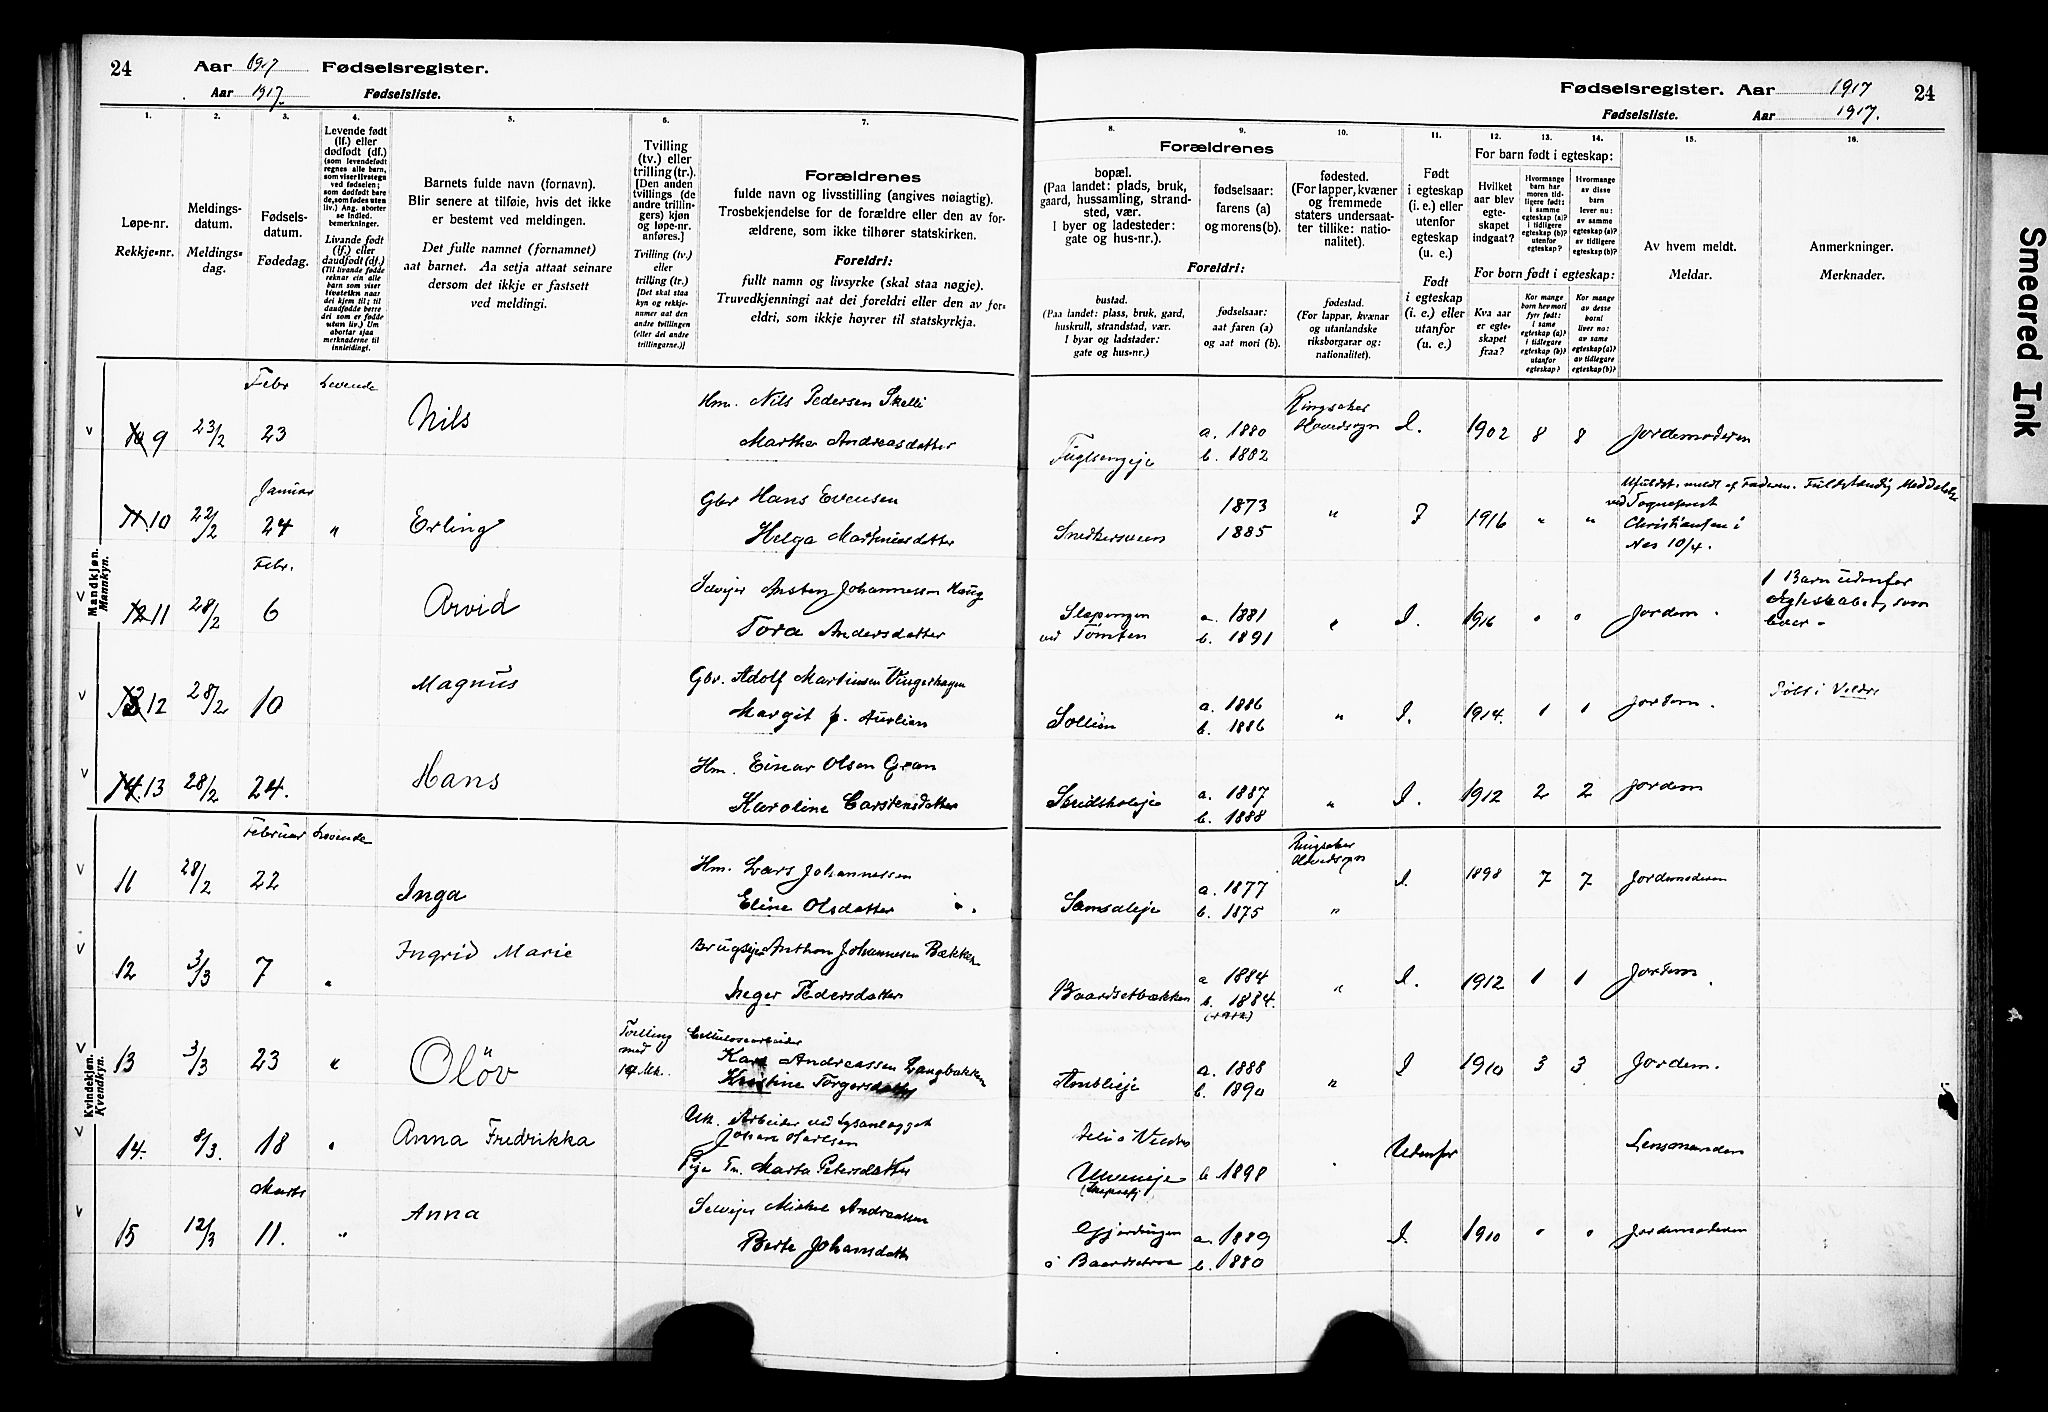 24 Aar 1917 Fødselsregister.
Aar 1917. Fødselsliste.
Fødselsregister. Aar 1917 24
Fødselsliste. Aar 1917.
Smeared Ink
1. 2. 3. 4. 5. 6. 7.
Løpe-nr.
Rekkje-nr.
Meldings-
datum.
Meldings-
dag.
Fødsels-
datum.
Fødedag.
Levende født
(lf.) eller
dødfødt (df.)
(som levendefødt
regnes alle barn,
som viser livstegn
ved fødselen;
som dødfødt barn
de, som fødes uten
liv.) Ang. aborter
se indled.
bemerkninger.
Livande født
(lf.) eller
daudfødt (df.)
Barnets fulde navn (fornavn).
Blir senere at tilføie, hvis det ikke
er bestemt ved meldingen.
Det fulle namnet (fornamnet)
aat barnet. Aa setja attaat seinare
dersom det ikkje er fastsett
ved meldingi.
Tvilling
(tv.) eller
trilling (tr.).
[Den anden
tvillings (de
andre trillin-
gers) kjøn
og løpe-nr.
anføres.]
Tvilling (tv.)
eller
trilling (tr.)
[Det skal staa
kyn og rekkje-
numer aat den
andre tvillingen
(eller dei andre
trillingarne.)]
Forældrenes
fulde navn og livsstilling (angives nøiagtig).
Trosbekjendelse for de forældre eller den av for-
ældrene, som ikke tilhører statskirken.
Foreldri:
fullt namn og livsyrke (skal staa nøgje).
Truvedkjenningi aat dei foreldri eller den av for-
eldri, som ikkje høyrer til statskyrkja.
8. 9. 10. 11. 12. 13. 14. 15. 16.
Forældrenes
bopæl.
(Paa landet: plads, bruk,
gaard, hussamling, strand-
sted, vær.
I byer og ladesteder:
gate og hus-nr.).
fødselsaar:
farens (a)
og morens(b).
fødested.
(For lapper, kvæner
og fremmede
staters undersaat-
ter tillike: natio-
nalitet).
Foreldri:
bustad.
(Paa landet: plass, bruk, gard,
huskrull, strandstad, vær.
I byar og ladstader:
gate og hus-nr.)
fødselsaar:
aat faren (a)
og aat mori (b).
fødestad.
(For lappar, kvænar
og utanlandske
riksborgarar og:
nationalitet).
Født
i egteskap
(i. e.) eller
utenfor
egteskap
(u. e.)
Født
i egteskap
(i. e.) eller
utanfor
(u. e.)
For barn født i egteskap:
Hvilket
aar blev
egte-
skapet
indgaat?
Hvormange
barn har
moren tid-
ligere født:
i samme
egteskap (a)?
i tidligere
egteskap (b)?
utenfor
egteskap?
Hvormange
av disse
barn
lever nu:
av samme
egteskap (a)?
av tidligere
egteskap (b)?
For born født i egteskap:
Kva aar
er egte-
skapet
fraa?
Kor mange
born hev mori
fyrr født:
i same
egteskap (a)?
i tidlegare
egteskap (b)?
utanfor
egteskap?
Kor mange
av desse
borni
liver no:
av same
egteskap (a)?
av tidlegare
egteskap (b)?
Av hvem meldt.
Meldar.
Anmerkninger.
Merknader.
Mandkjøn.
Mannkyn.
Febr Levende
v 10 9 23/2 23 Nils Hm. Nils Pedersen Skelli
Marthe Andreasdatter
Fuglsengeje a. 1880 b. 1882 Ringsaker Hovedsogn I. 1902 8 8 Jordemoderen
Januar
11. 10 22/2 24 " Erling Gbr Hans Evensen
Helga Martiniusdatter
Snedkersveen 1873 1885 " I 1916 " " ved
Christiansen i
Nes 10/4.
Febr.
v 12 11 28/2 6 Arvid Selvejer Johannessen Haug
Tora Andersdatter
ved Tømten a. 1881 b. 1891 " I. 1916 " " Jordem.
1 Barn udenfor
Egteskabet, som
lever.
v 13 12 28/2 10 Magnus Gbr. Adolf Martinsen Vingerhagen
Margit f. Aurlien
Sollien a. 1886 b. 1886 " I. 1914. 1 1 Jordem. Født i Veldre
v 14. 13 28/2 24. Hans Hm. Einar Olsen Gran
Karoline Carstensdatter
a. 1887 b. 1888 " I. 1912 2 2 Jordem
Kvindekjøn.
Kvendkyn.
Februar Levende
v 11 28/2 22 Inga Hm. Lars Johannessen
Eline Olsdatter
a. 1877 b. 1875 Ringsaker Hovedsogn " I. 1898 7 7 Jordemoderen
v 12 3/3 7 " Ingrid Marie Brugsejer Anthon Johannesen Bækken
Inger Pedersdatter
Baardsetbækken a 1884 b. 1884. " I. 1912 1 1 Jordem.
v 13 3/3 23 " Oløv Tvilling
med
Mk.
Cellulosearbeider
Karl Andreassen Langbakken
Kristine Torgersdatter
a. 1888 b. 1890 " I 1910 3 3 Jordem.
v 14. 8/3. 18 " Anna Fredrikka Uk. Arbeider ved Lysanlegget
Pige Fr. Marta Petersdatter
b 1898 Udenfor Lensmanden
Marts
v 15 12/3 11. " Anna Selvejer Mikkel Andreassen
Berte Johansdatter
Gjerdingen
a. 1889 b. 1880 I. 1910 " " Jordemoderen